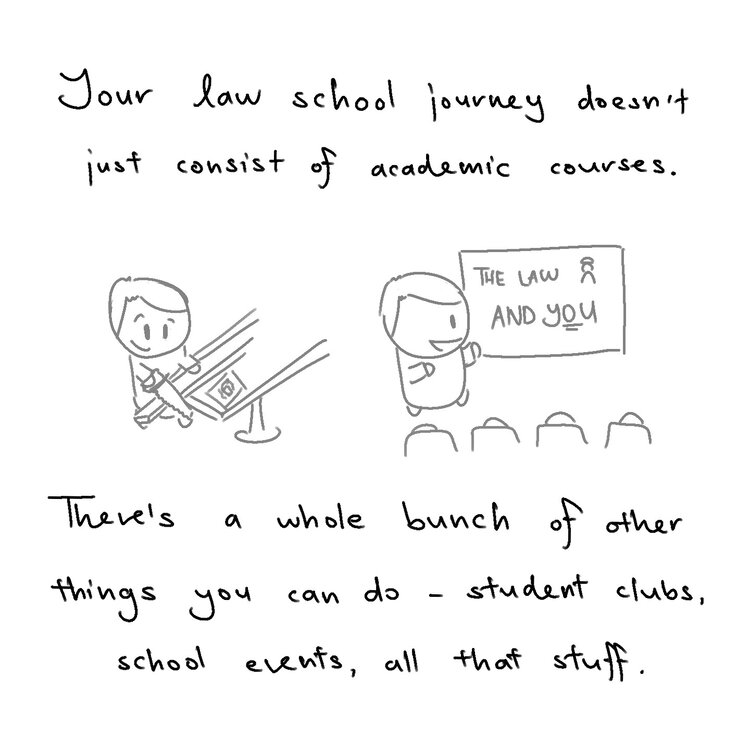 Your law school journey doesn't
just consist of academic courses.
THE LAW
AND YOU
There's a whole bunch of other
things you can do – student clubs,
school events, all that stuff.